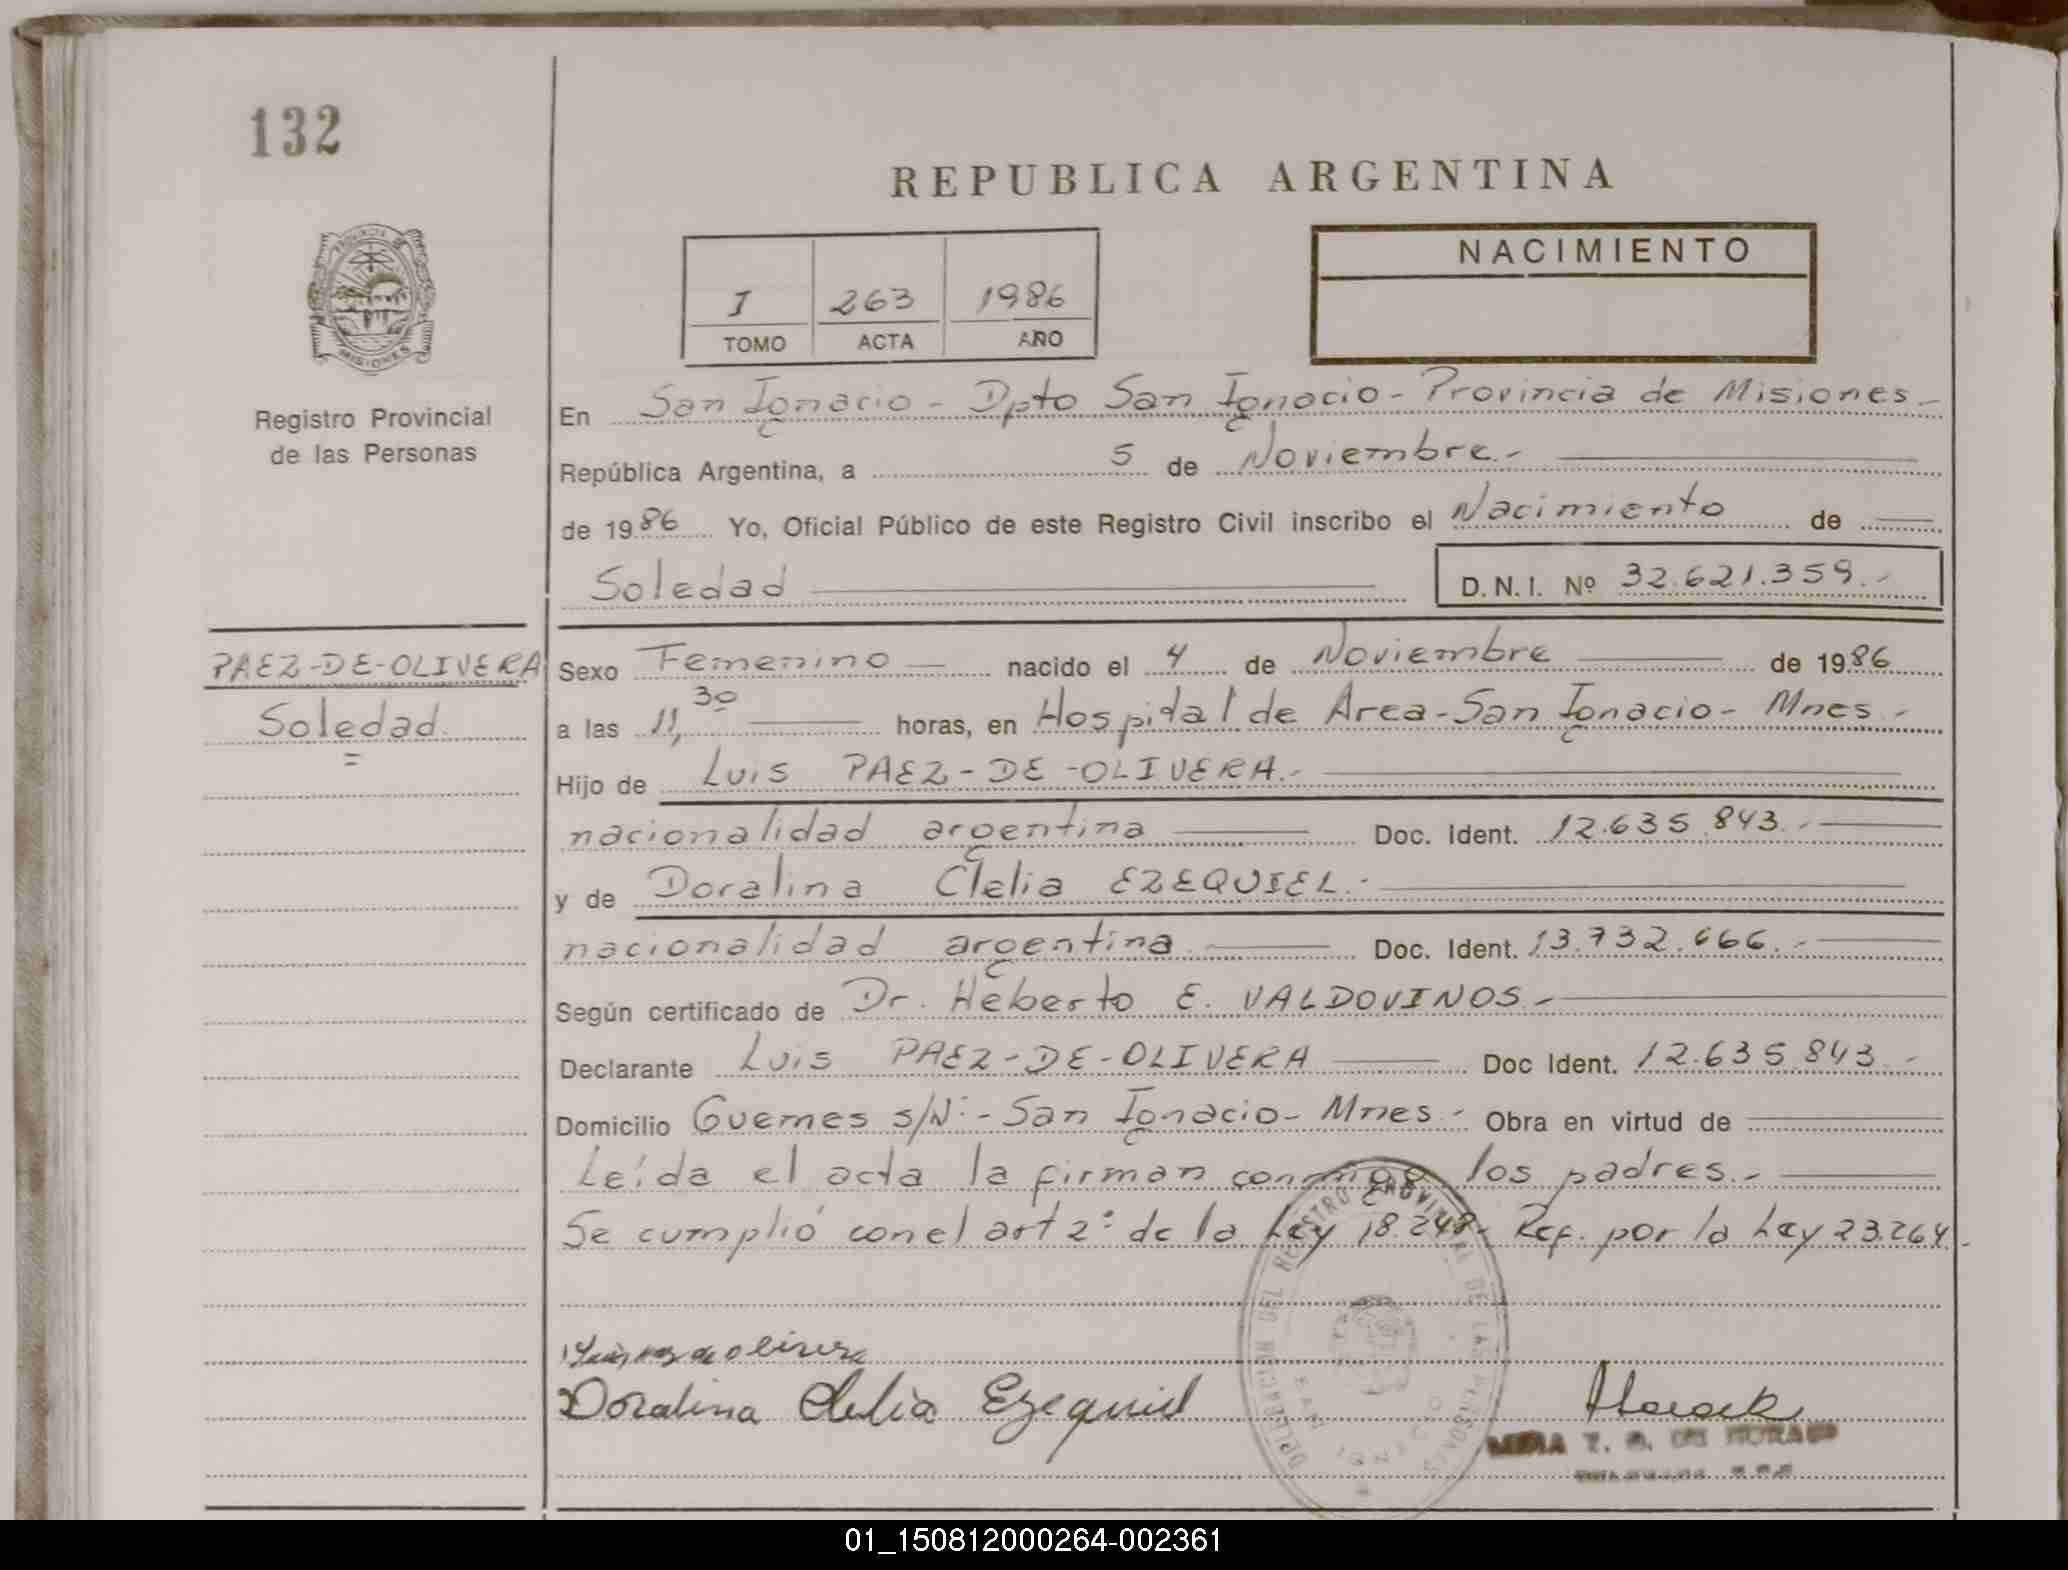 132
REPUBLICA ARGENTINA
PROVINCIA DE
MISIONES
Registro Provincial
de las Personas
I 263 1986
TOMO ACTA AÑO
NACIMIENTO
En San Ignacio - Dpto San Ignacio - Provincia de Misiones -
República Argentina, a 5 de Noviembre.-
de 1986 Yo, Oficial Público de este Registro Civil inscribo el Nacimiento de
Soledad D.N.I. Nº 32.621.359.-
PAEZ-DE-OLIVERA
Soledad.
Sexo Femenino nacido el 4 de Noviembre de 1986
a las 11,30 horas, en Hospital de Area - San Ignacio - Mnes.-
Hijo de Luis PAEZ-DE-OLIVERA.-
nacionalidad argentina Doc. Ident. 12.635.843.-
y de Doralina Clelia EZEQUIEL.-
nacionalidad argentina Doc. Ident. 13.732.666.-
Según certificado de Dr. Heberto E. VALDOVINOS.-
Declarante Luis PAEZ-DE-OLIVERA Doc Ident. 12.635.843.-
Domicilio Guemes s/N - San Ignacio - Mnes.- Obra en virtud de
Leída el acta la firman conmigo los padres.-
Se cumplió con el art 2º de la Ley 18.248.- Ref. por la Ley 23.264.-
DELEGACION DEL REGISTRO PROVINCIAL DE LAS PERSONAS
Doralina Clelia Ezequiel
01_150812000264-002361